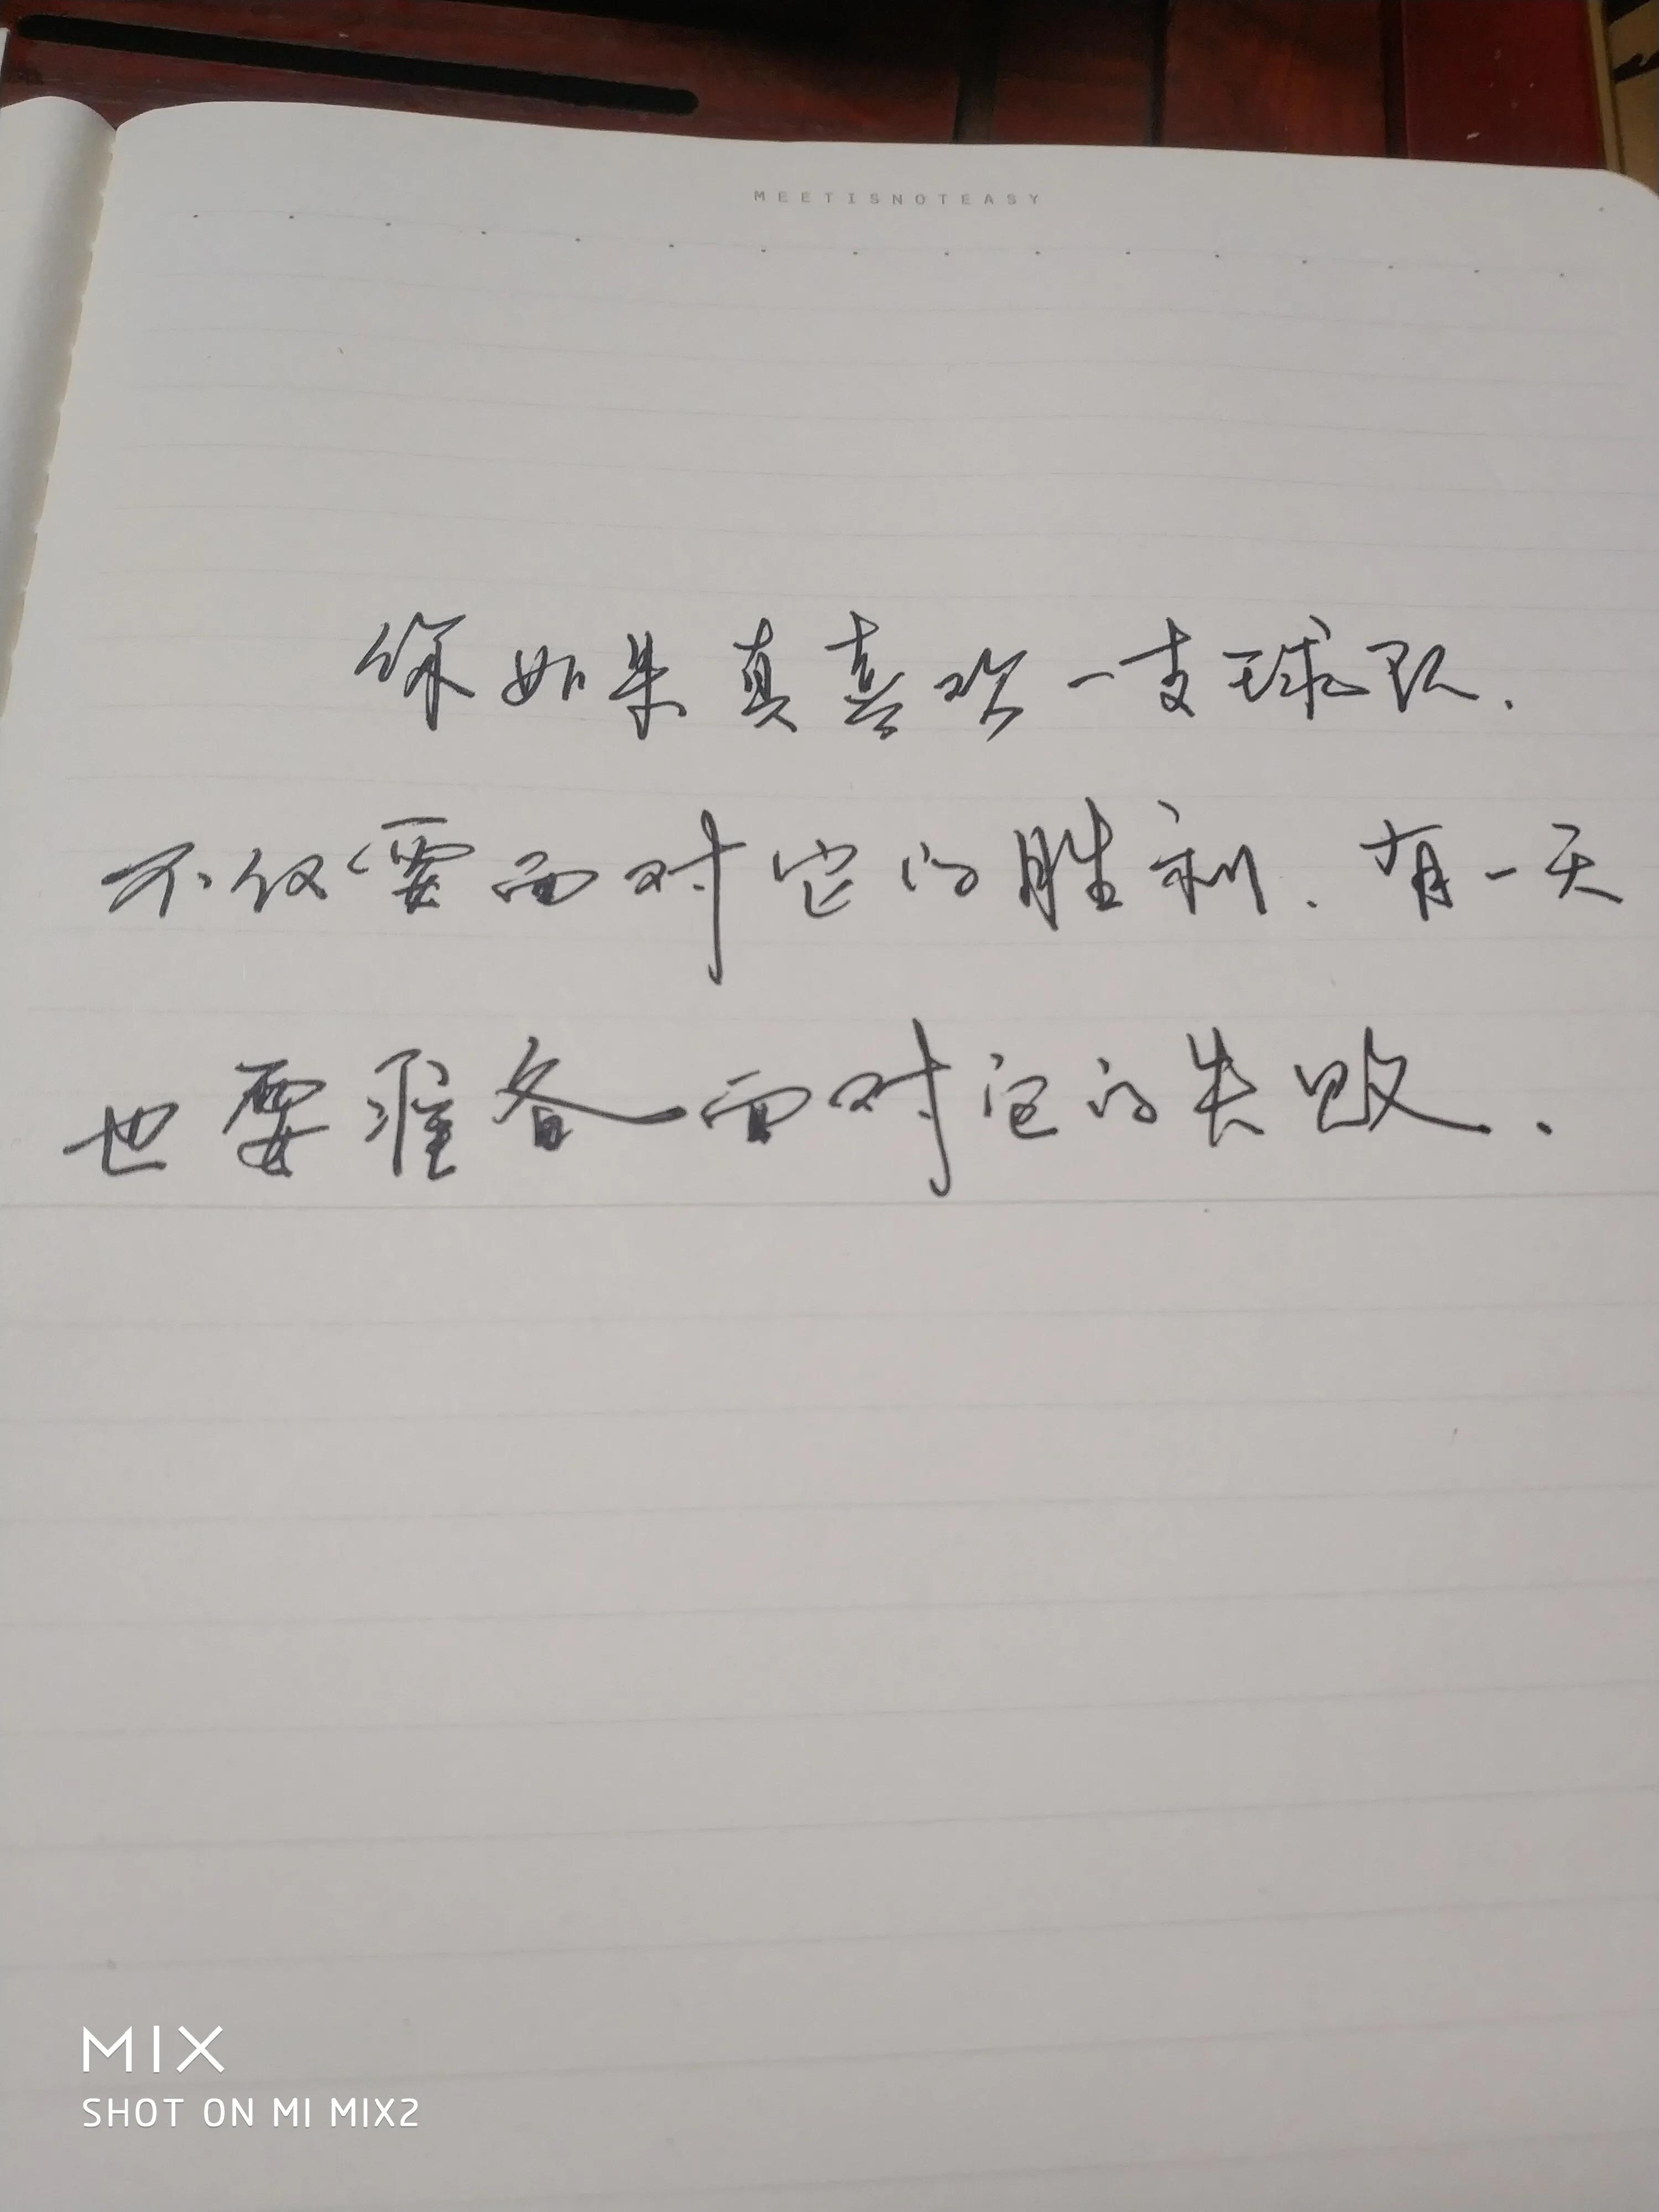 MEETISNOTEASY
你如果真喜欢一支球队.
不仅要面对它的胜利.有一天
也要准备面对它的失败.
MIX
SHOT ON MI MIX2